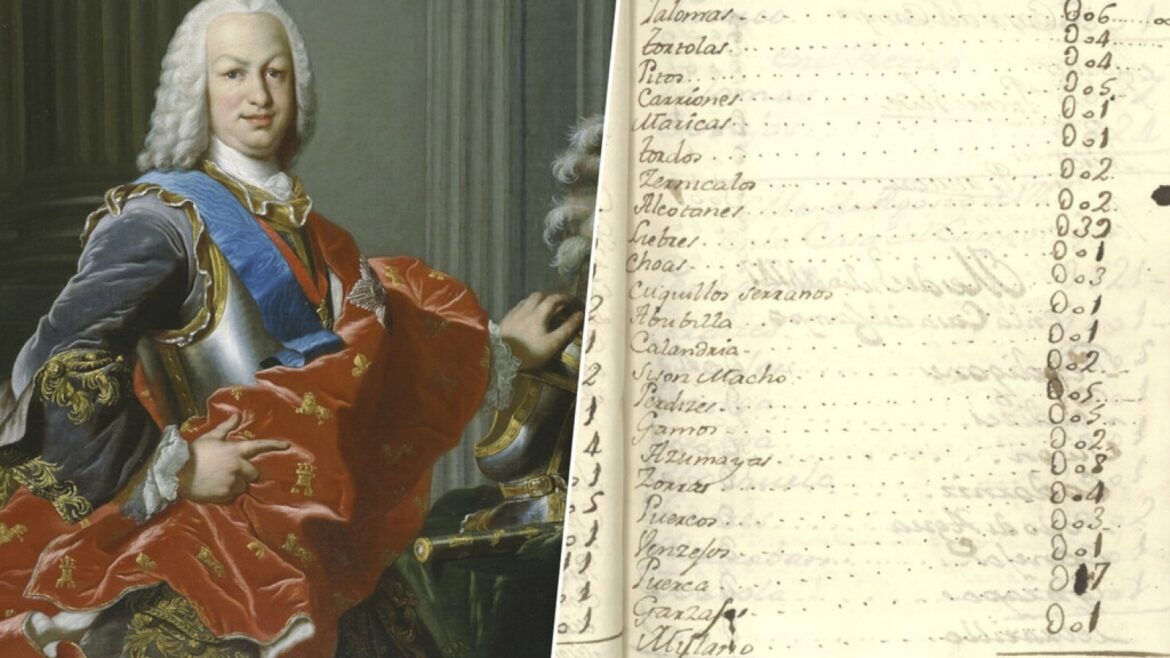 2
1
2
1
4
Palomas 006
tortolas 004
Pitos 004
Carriones 005
Maricas 001
tordos 001
Zernicalos 002
Alcotanes 002
Liebres 039
Choas 001
Cuquillos serranos 003
Abubilla 001
Calandria 001
Sison Macho 002
Perdizes 005
Gamos 005
Azumayas 002
Zorras 008
Puercos 004
Venzejos 003
Puerca 001
Garzas
Mylano 001